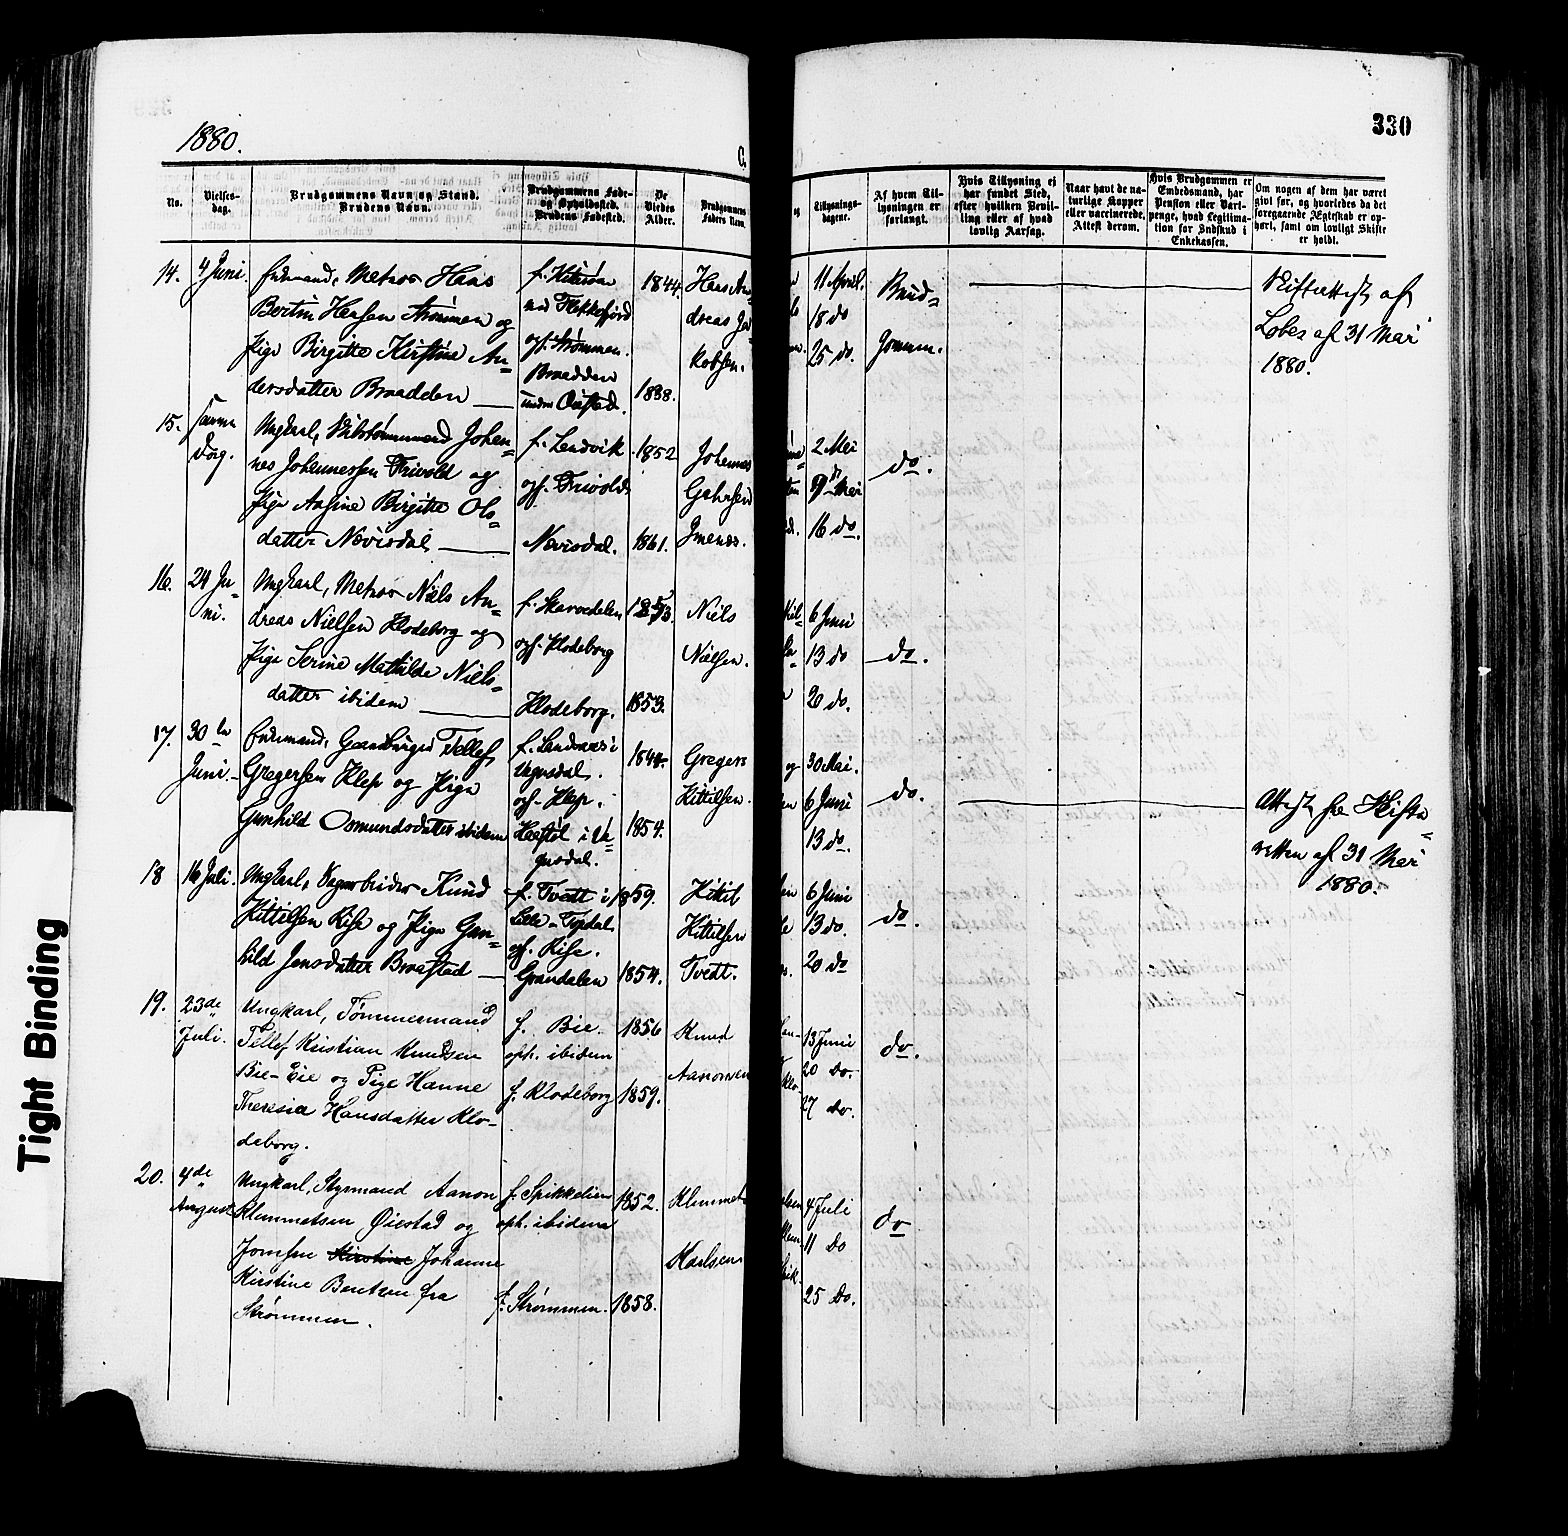 1880.
330
No.
Vielses-
dag.
Brudgommens Navn og Stand.
Brudens Navn.
Brudgommens Føde-
og Opholdssted.
Brudens Fødested.
De
Viedes
Alder.
Brudgommens
Faders Navn.
og
Tillysnings-
dagene.
Af hvem Til-
lysningen er
forlangt.
Hvis Tillysning ej
har fundet Sted,
efter hvilken Bevil-
ling eller af hvad
lovlig Aarsag.
Naar havt de na-
turlige Kopper
eller vaccinerede,
Attest derom.
Hvis Brudgommen er
Embedsmand, har
Pension eller Vart-
penge, hvad Legitima-
tion for Indskud i
Enkekassen.
Om nogen af dem har været
givt før, og hvorledes da det
foregaaende Ægteskab er op-
hørt, samt om lovligt Skifte
er holdt.
14.
4 Juni.
Enkemand, Matros Hans
Bertin Hansen Strømmen og
Pige Birgitte Kirstine An-
dersdatter Braadden
f.
ved Flekkefjord
oph. Strømmen.
Braadden
under Øiestad.
1844.
1838.
Hans An-
dreas Ja-
kobsen.
11 April.
18 do
25 do.
Brud-
gommen.
Skifteattest af
Lobes af 31 Mai
1880.
15.
samme
Dag.
Ungkarl, Johan-
nes Johannessen Trivold og
Pige Aasine Birgitte Ols-
datter Nævisdal
f. Landvik
oph. Trivold
Nævisdal.
1852
1861.
Johannes
2 Mai
9 de Mai
16 do.
do.
16.
24 Ju-
ni.
Ungkarl, Matros Niels An-
dreas Nielsen Klodeborg og
Pige Serine Mathilde Niels-
datter ibidem
f. Skarvedalen
oph. Klodeborg
Klodeborg.
1853.
1853.
Niels
Nielsen.
6 Juni
13 do
20 do.
do.
17.
30 te
Juni.
Enkemand, Gaardbruger Tellef
Gregersen Klep og Pige
Gunhild Osmundsdatter ibidem
f. i
Vegusdal.
oph. Klep.
i Ve-
gusdal.
1844
1854.
Gregers
Kittilsen.
og
30 Mai.
6 Juni
13 do.
do.
Attest fra Skifte-
retten af 31 Mai
1880.
18
16 Juli.
Ungkarl, Dagarbeider Knud
Kittilsen Rise og Pige Gun-
hild Jensdatter Braastad
f. Tvedt i
Lille-Topdal
oph. Rise.
Grændalen
1859.
1854.
Kittil
Kittilsen
Tvedt.
6 Juni
13 do.
20 do
do.
19.
23de
Juli.
Ungkarl, Tømmermand
Tellef Kristian Knudsen
Bie-Eie og Pige Hanne
Theresia Hansdatter Klo-
deborg.
f. Bie.
oph. ibidem
f. Klodeborg
1856
1859.
Knud
Aanonsen
13 Juni
20 do.
27 do.
do.
20.
4de
August
Ungkarl, Styrmand Aanon
Klemmetsen Øiestad og
Jomfru Kirstine Johanne
Kirstine Bentsen fra
Strømmen.
f. Spikkelien
oph. ibidem
f. Strømmen.
1852.
1858.
Klemmet
Karlsen
4 Juli
11 do
25 do.
do
Tight Binding